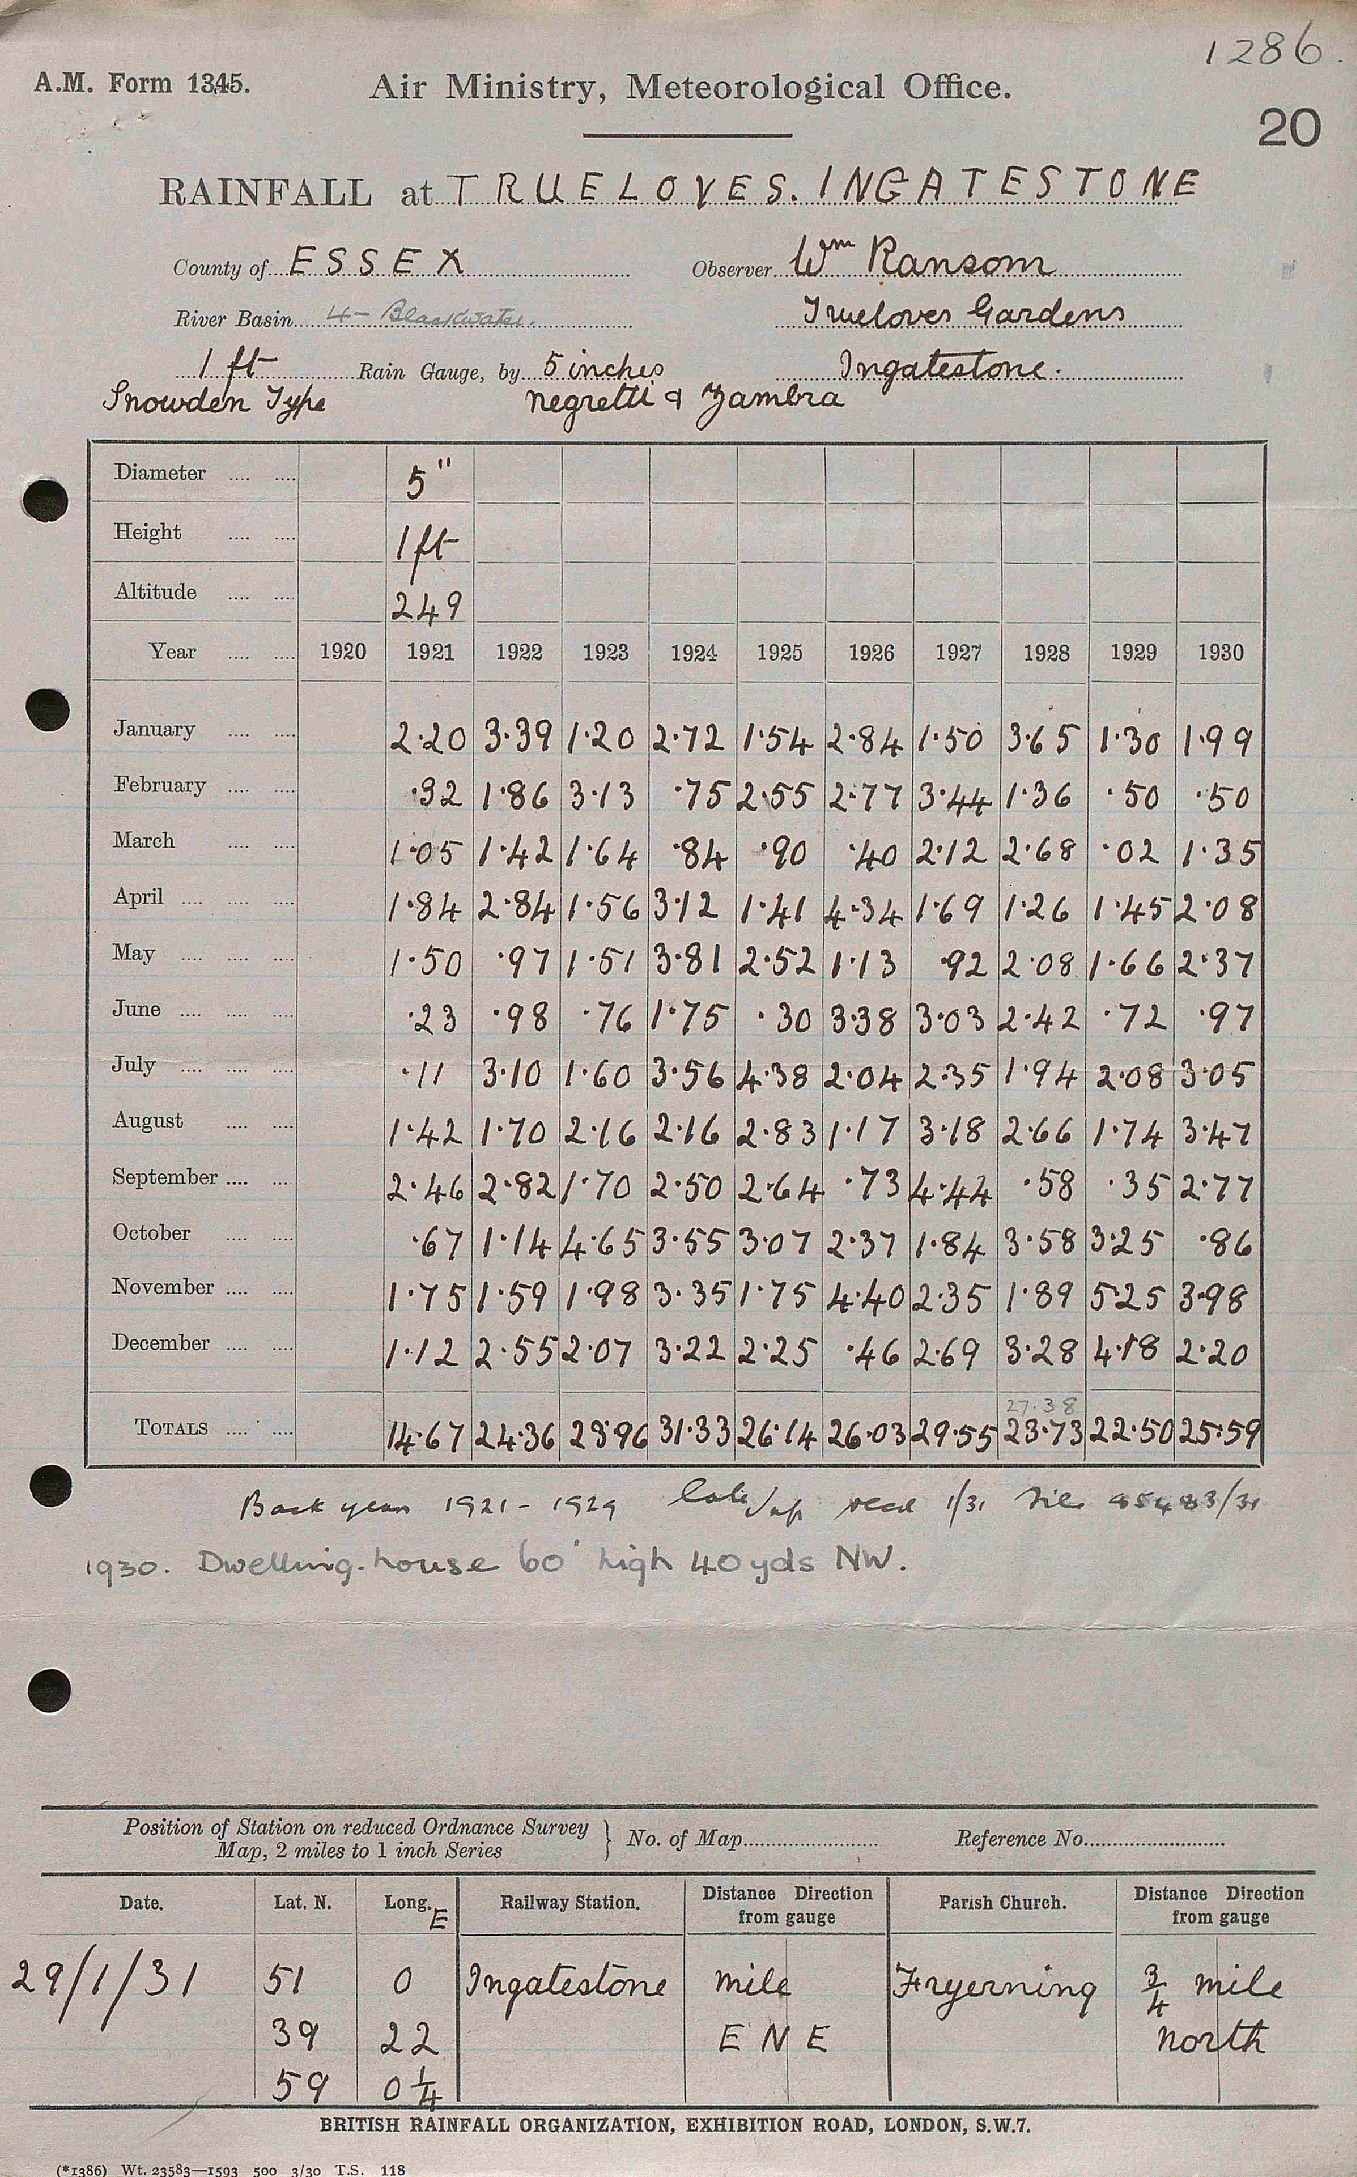 1286.
A.M. Form 1345. Air Ministry, Meteorological Office.
20
RAINFALL at TRUELOVES. INGATESTONE
County of ESSEX Observer Wm Ransom
River Basin 4- Blackwater. Trueloves Gardens
1 ft Rain Gauge, by 5 inches Ingatestone.
Snowden Type Negretti & Zambra
Diameter .... .... 5"
Height .... .... 1ft
Altitude .... .... 249
Year .... .... 1920 1921 1922 1923 1924 1925 1926 1927 1928 1929 1930
January .... .... 2.20 3.39 1.20 2.72 1.54 2.84 1.50 3.65 1.30 1.99
February .... .... .32 1.86 3.13 .75 2.55 2.77 3.44 1.36 .50 .50
March .... .... 1.05 1.42 1.64 .84 .90 .40 2.12 2.68 .02 1.35
April .... .... .... 1.84 2.84 1.56 3.12 1.41 4.34 1.69 1.26 1.45 2.08
May .... .... .... 1.50 .97 1.51 3.81 2.52 1.13 .92 2.08 1.66 2.37
June .... .... .... .23 .98 .76 1.75 .30 3.38 3.03 2.42 .72 .97
July .... .... .... .11 3.10 1.60 3.56 4.38 2.04 2.35 1.94 2.08 3.05
August .... .... 1.42 1.70 2.16 2.16 2.83 1.17 3.18 2.66 1.74 3.47
September .... .... 2.46 2.82 1.70 2.50 2.64 .73 4.44 .58 .35 2.77
October .... .... .67 1.14 4.65 3.55 3.07 2.37 1.84 3.58 3.25 .86
November .... .... 1.75 1.59 1.98 3.35 1.75 4.40 2.35 1.89 5.25 3.98
December .... .... 1.12 2.55 2.07 3.22 2.25 .46 2.69 3.28 4.18 2.20
27.38
TOTALS .... .... 14.67 24.36 23.96 31.33 26.14 26.03 29.55 23.73 22.50 25.59
Back years 1921-1929 1/31
1930. Dwelling-house 60' high 40 yds NW.
Position of Station on reduced Ordnance Survey Map, 2 miles to 1 inch Series } No. of Map Reference No.
Date. Lat. N. Long. E Railway Station. Distance Direction from gauge Parish Church. Distance Direction from gauge
29/1/31 51 0 Ingatestone mile Fryerning 3/4 mile
39 22 ENE North
59 0 1/4
BRITISH RAINFALL ORGANIZATION, EXHIBITION ROAD, LONDON, S.W.7.
(*1386) Wt. 23583—1593 500 3/30 T.S. 118